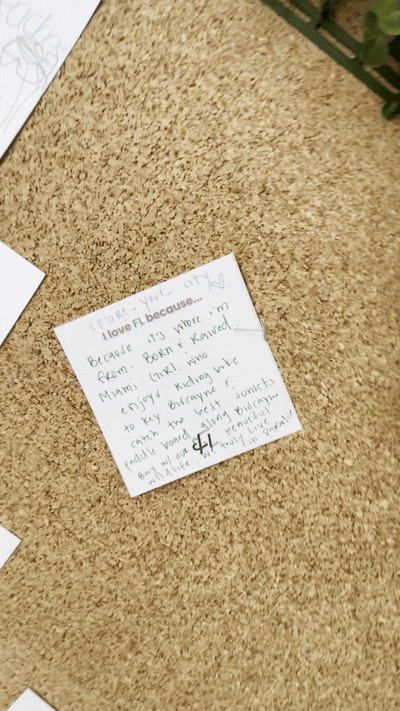 xplore_your_city
I love FL because...
Because it's where i'm
from. Born & Raised
Miami Girl who
enjoys riding bike
to Key Biscayne &
catch the best sunsets
paddle board along Biscayne
Bay w/ our beautiful
wildlife we truly live
in paradise